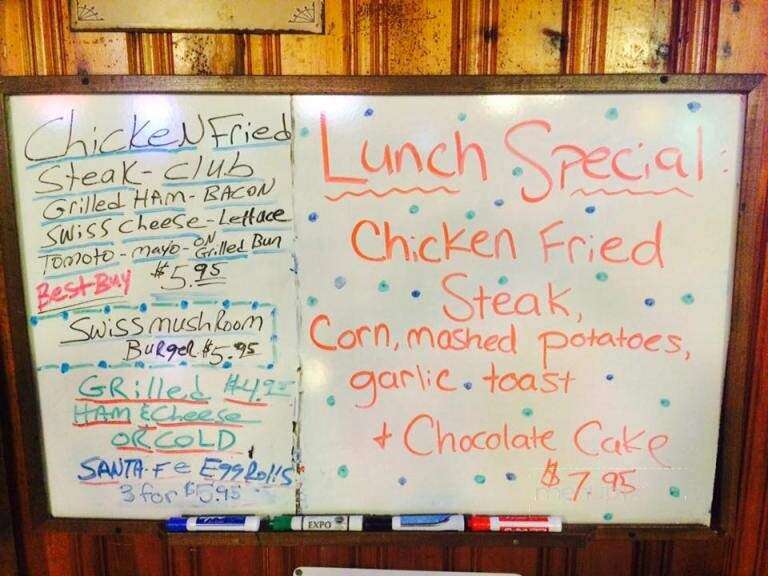 ChickeN Fried
Steak - club
Grilled HAM - BACON
SWiSS cheese - Lettace
Tomoto - mayo - ON Grilled Bun
Best Buy $5.95
Swiss mushRoom
BuRgeR $5.95
GRilled
HAM & Cheese
OR COLD
SANTA-Fe EggRolls
3 for $5.95
Lunch Special:
Chicken Fried
Steak,
Corn, mashed potatoes,
garlic toast
+ Chocolate Cake
$7.95
EXPO